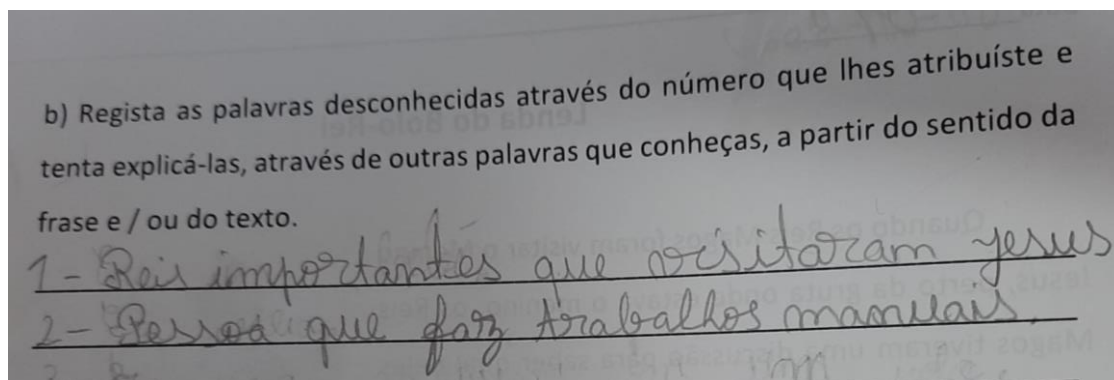 b) Regista as palavras desconhecidas através do número que lhes atribuíste e
tenta explicá-las, através de outras palavras que conheças, a partir do sentido da
frase e / ou do texto.
1 - Reis importantes que visitaram Jesus
2 - Pessoa que faz trabalhos manuais.